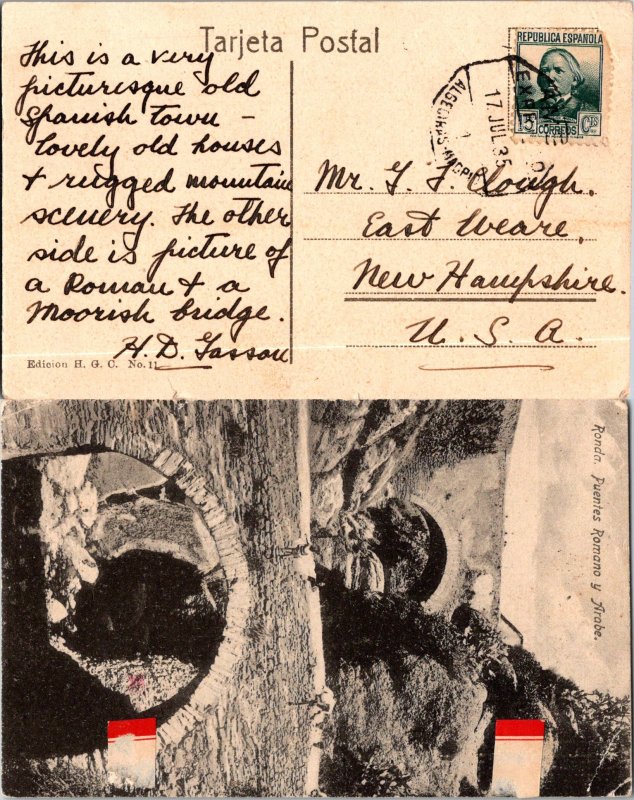 Tarjeta Postal
This is a very
picturesque old
Spanish town -
lovely old houses
+ rugged mountain
scenery. The other
side is picture of
a Roman + a
Moorish bridge.
H. D. Gasson
Edicion H. G. C. No. 11
REPUBLICA ESPAÑOLA
15 CTS
CORREOS
17 JUL 35
Mr. G. F. Clough.
East Weare,
New Hampshire.
U. S. A.
Ronda. Puentes Romano y Arabe.